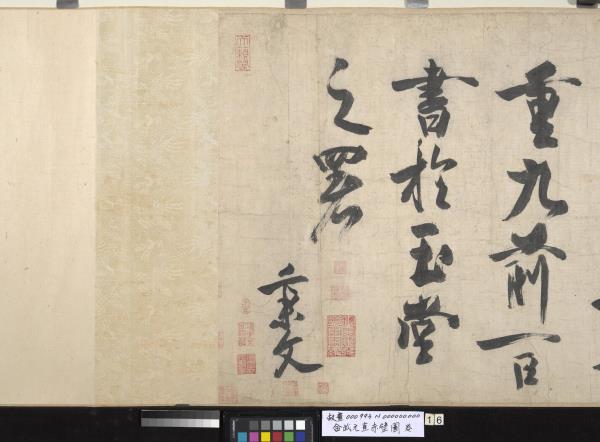 重九前一日
書於玉堂
之署
秉文
故畫000994N000000000
金武元直赤壁圖 卷
16